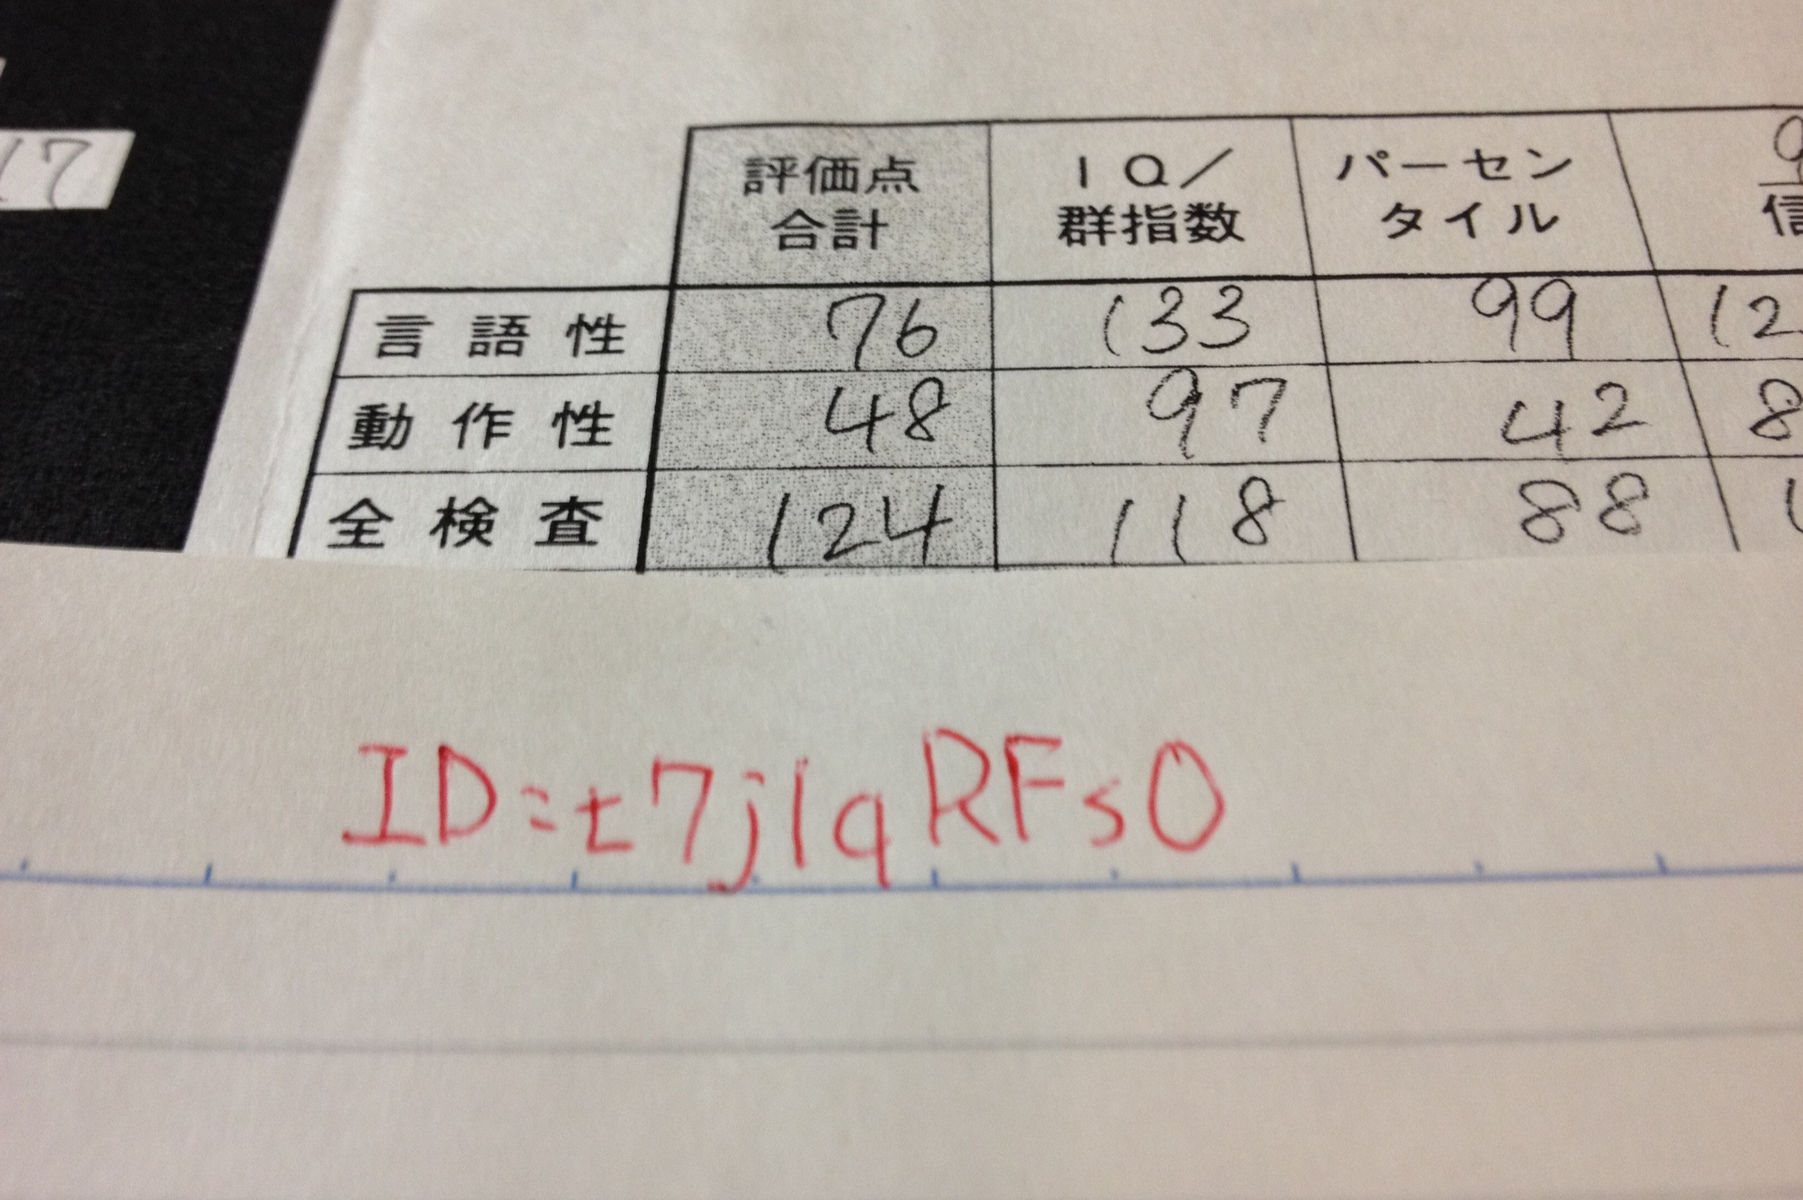 17
評価点
合計
IQ/
群指数
パーセン
タイル
9
信
言語性 76 133 99 12
動作性 48 97 42 8
全検査 124 118 88 1
ID=t7jlqRFs0